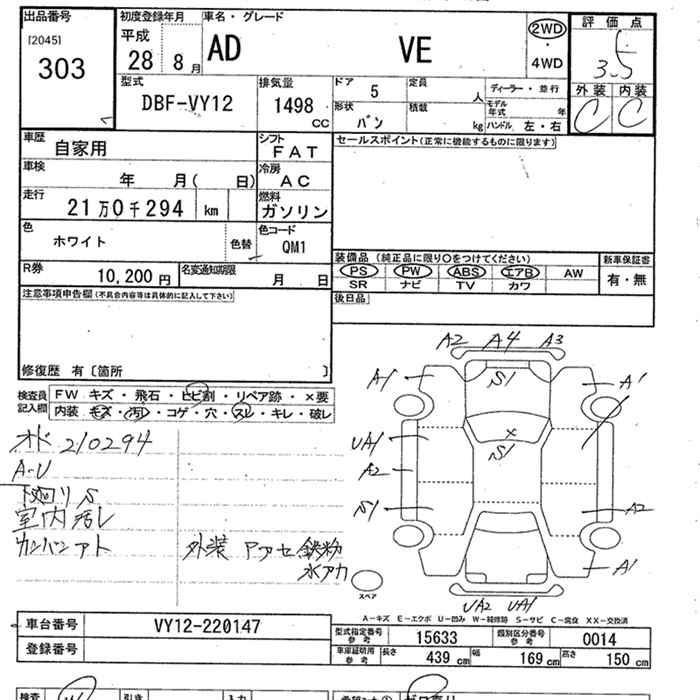 出品番号 初度登録年月 車名・グレード 2WD 評価点
[2045] 平成 AD VE ・ 3.5
303 28 8月 4WD 外装 内装
型式 排気量 ドア 5 定員 人 ディーラー・並行 C C
DBF-VY12 1498 CC 形状 バン 積載 kg モデル年式 年
ハンドル 左・右
車歴 自家用 シフト FAT セールスポイント(正常に機能するものに限ります)
車検 年 月( 日) 冷房 AC
走行 21万0千294 km 燃料 ガソリン
色 ホワイト 色替 色コード QM1
装備品 (純正品に限り○をつけてください) 新車保証書
R券 10,200円 名変通知期限 月 日 PS PW ABS エアB AW 有・無
SR ナビ TV カワ
注意事項申告欄(不具合内容等は具体的に記入して下さい) 後日品
修復歴 有〔箇所 〕
検査員記入欄 FW キズ・飛石・ヒビ割・リペア跡・×要
内装 キズ・汚レ・コゲ・穴・スレ・キレ・破レ
A2 A4 A3
A1 S1 A1
UA1 × S1
A2
S1 A2
A1
UA2 UA1
スペア
オド 210294
A-U
下廻りS
室内汚レ
カンバンアト 外装 アアセ 鉄粉
水アカ
A-キズ E-エクボ U-凹み W-補修跡 S-サビ C-腐食 XX-交換済
車台番号 VY12-220147 型式指定番号参考 15633 類別区分番号参考 0014
登録番号 車庫証明用参考 長さ 439 cm 幅 169 cm 高さ 150 cm
検査 引き 入力